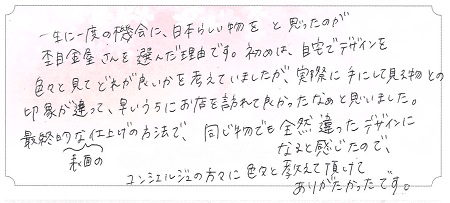 一生に一度の機会に、日本らしい物を と思ったのが
杢目金屋さんを選んだ理由です。初めは、自宅でデザインを
色々と見てどれが良いかを考えていましたが、実際に手にして見る物との
印象が違って、早いうちにお店を訪れて良かったなぁと思いました。
最終的な仕上げの方法で、同じ物でも全然違ったデザインに
表面の
なると感じたので、
コンシェルジュの方々に色々と教えて頂けて
ありがたかったです。